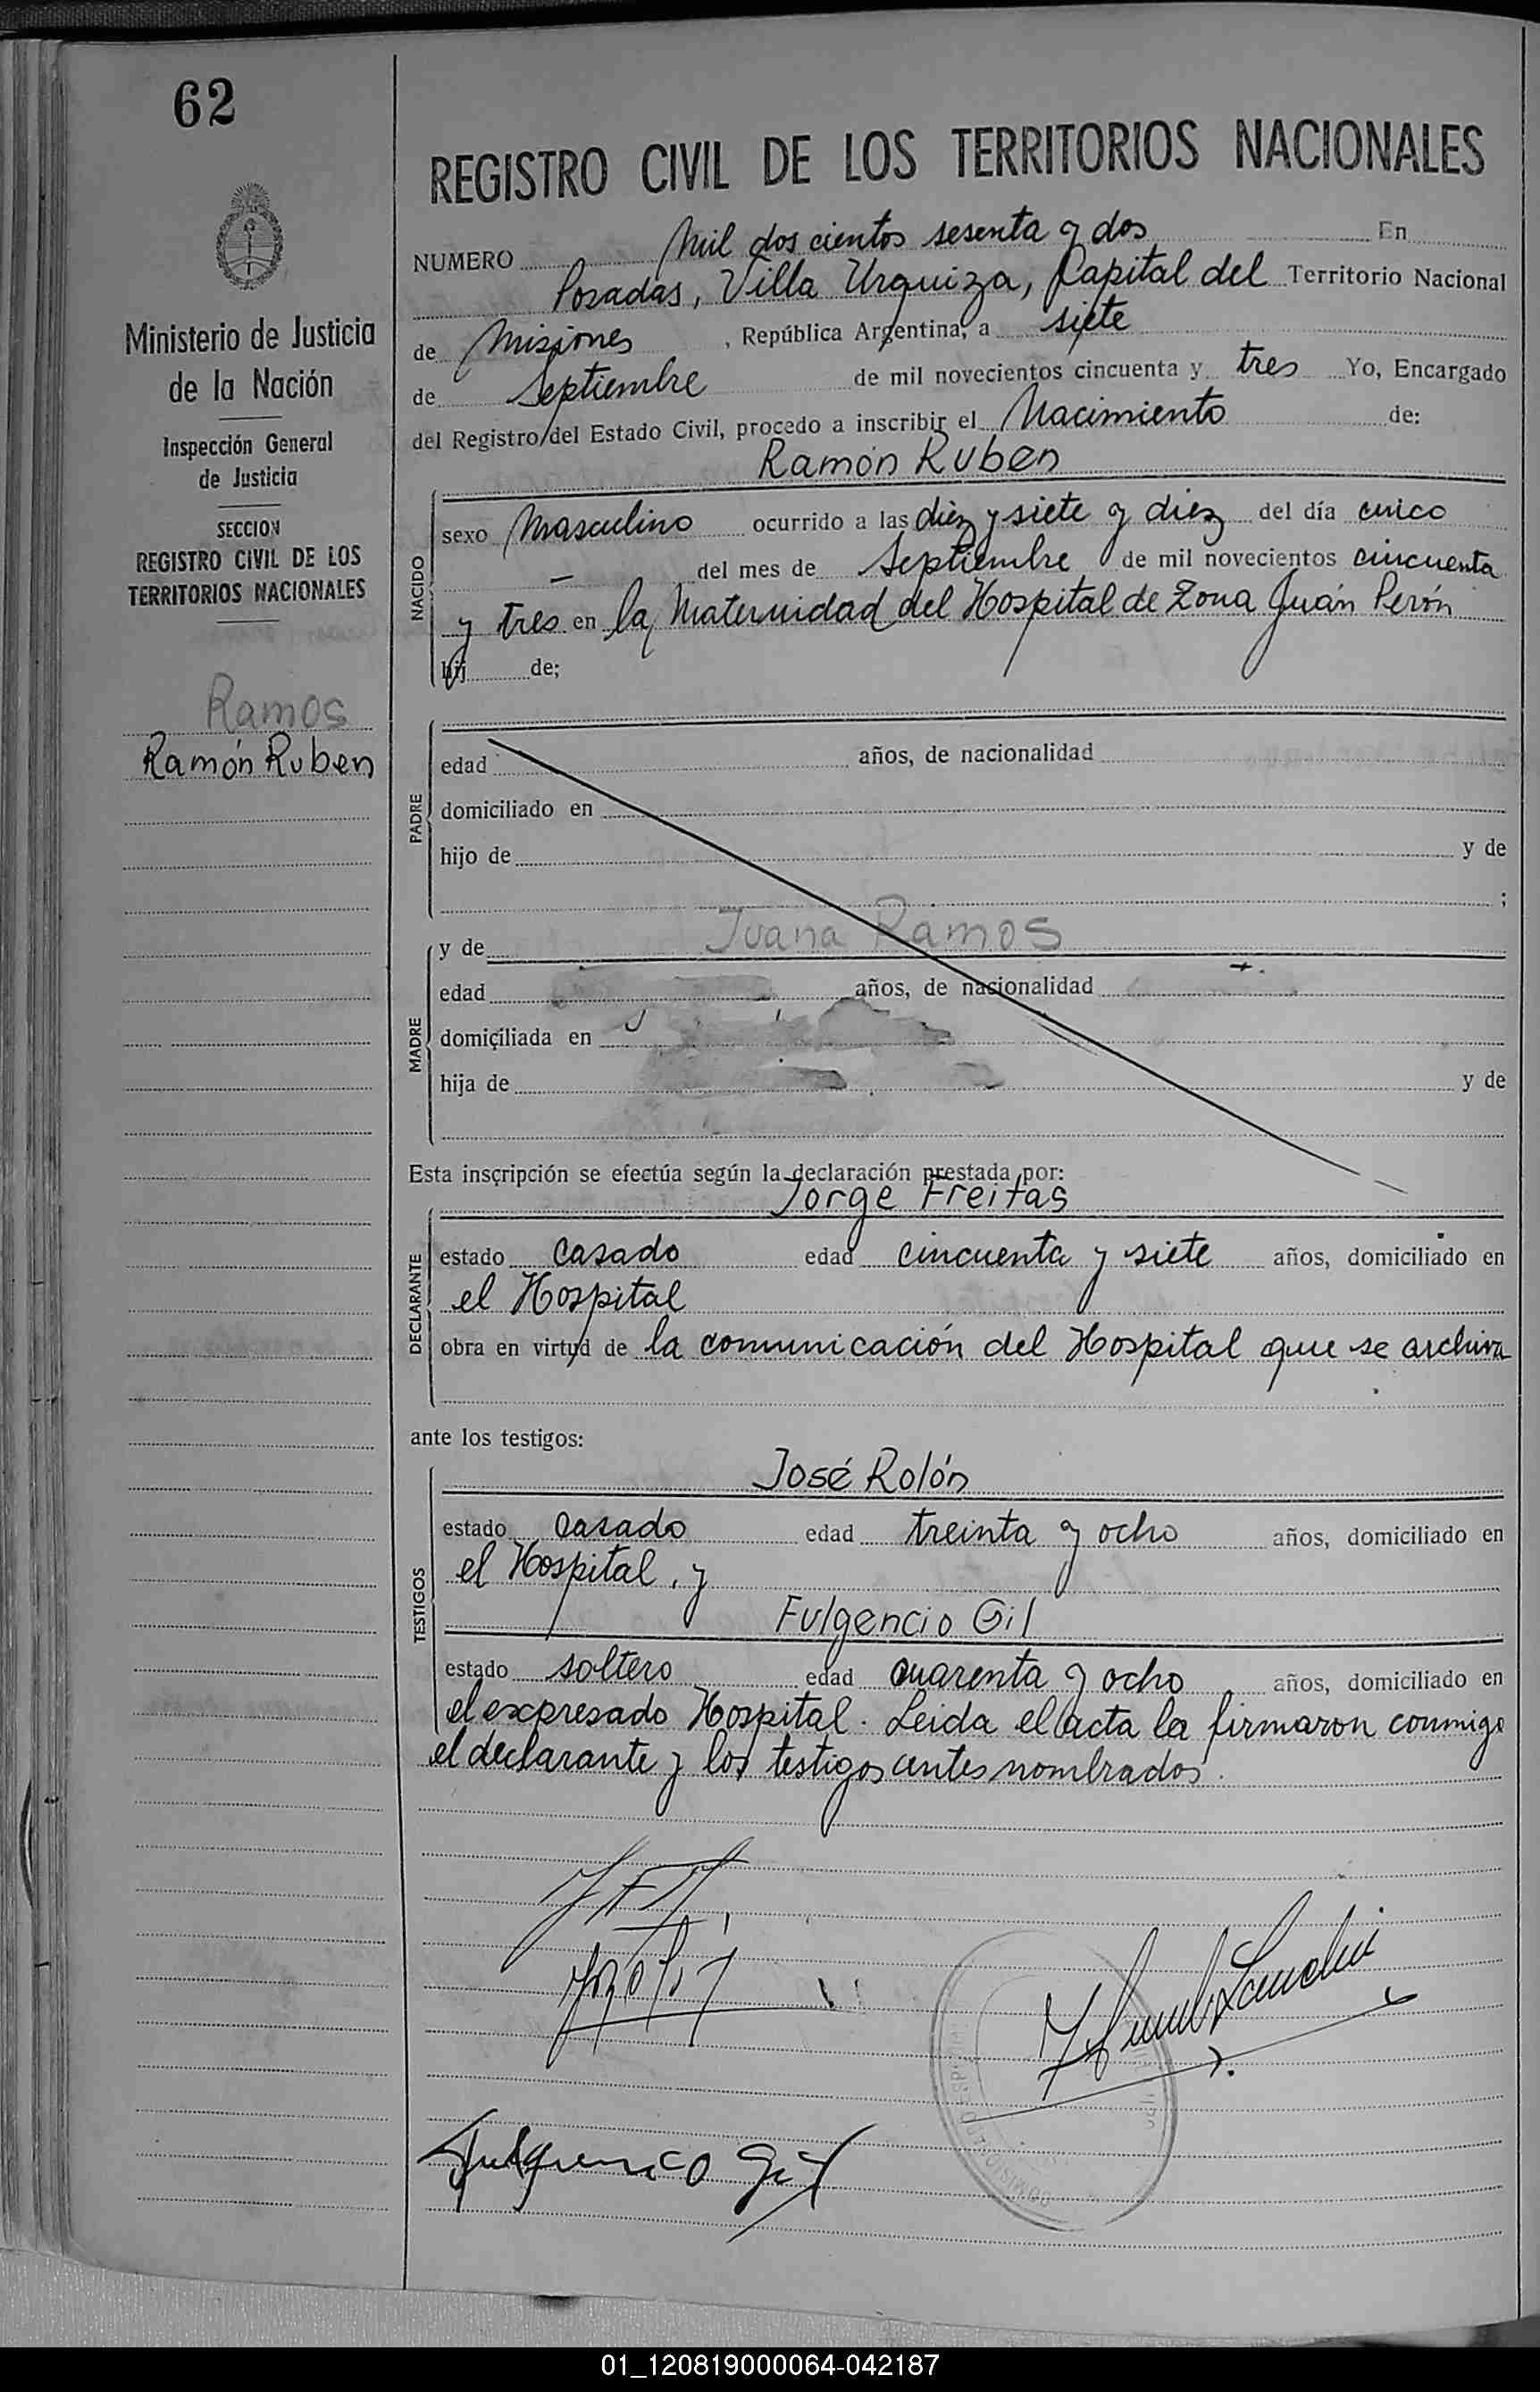 62
Ministerio de Justicia
de la Nación
Inspección General
de Justicia
SECCION
REGISTRO CIVIL DE LOS
TERRITORIOS NACIONALES
Ramos
Ramón Ruben
REGISTRO CIVIL DE LOS TERRITORIOS NACIONALES
NUMERO Mil dos cientos sesenta y dos En
Posadas, Villa Urquiza, Capital del Territorio Nacional
de Misiones, República Argentina, a siete
de Septiembre de mil novecientos cincuenta y tres Yo, Encargado
del Registro del Estado Civil, procedo a inscribir el Nacimiento de:
Ramón Ruben
NACIDO
sexo Masculino ocurrido a las diez y siete y diez del día cinco
— del mes de Septiembre de mil novecientos cincuenta
y tres en la Maternidad del Hospital de Zona Juán Perón
hij de;
PADRE
edad años, de nacionalidad
domiciliado en
hijo de y de
;
MADRE
y de Juana Ramos
edad años, de nacionalidad
domiciliada en
hija de y de
Esta inscripción se efectúa según la declaración prestada por:
Jorge Freitas
DECLARANTE
estado casado edad cincuenta y siete años, domiciliado en
el Hospital
obra en virtud de la comunicación del Hospital que se archiva
ante los testigos:
José Rolón
TESTIGOS
estado casado edad treinta y ocho años, domiciliado en
el Hospital, y
Fulgencio Gil
estado soltero edad cuarenta y ocho años, domiciliado en
el expresado Hospital. Leida el acta la firmaron conmigo
el declarante y los testigos antes nombrados.
Fulgencio Gil
01_120819000064-042187